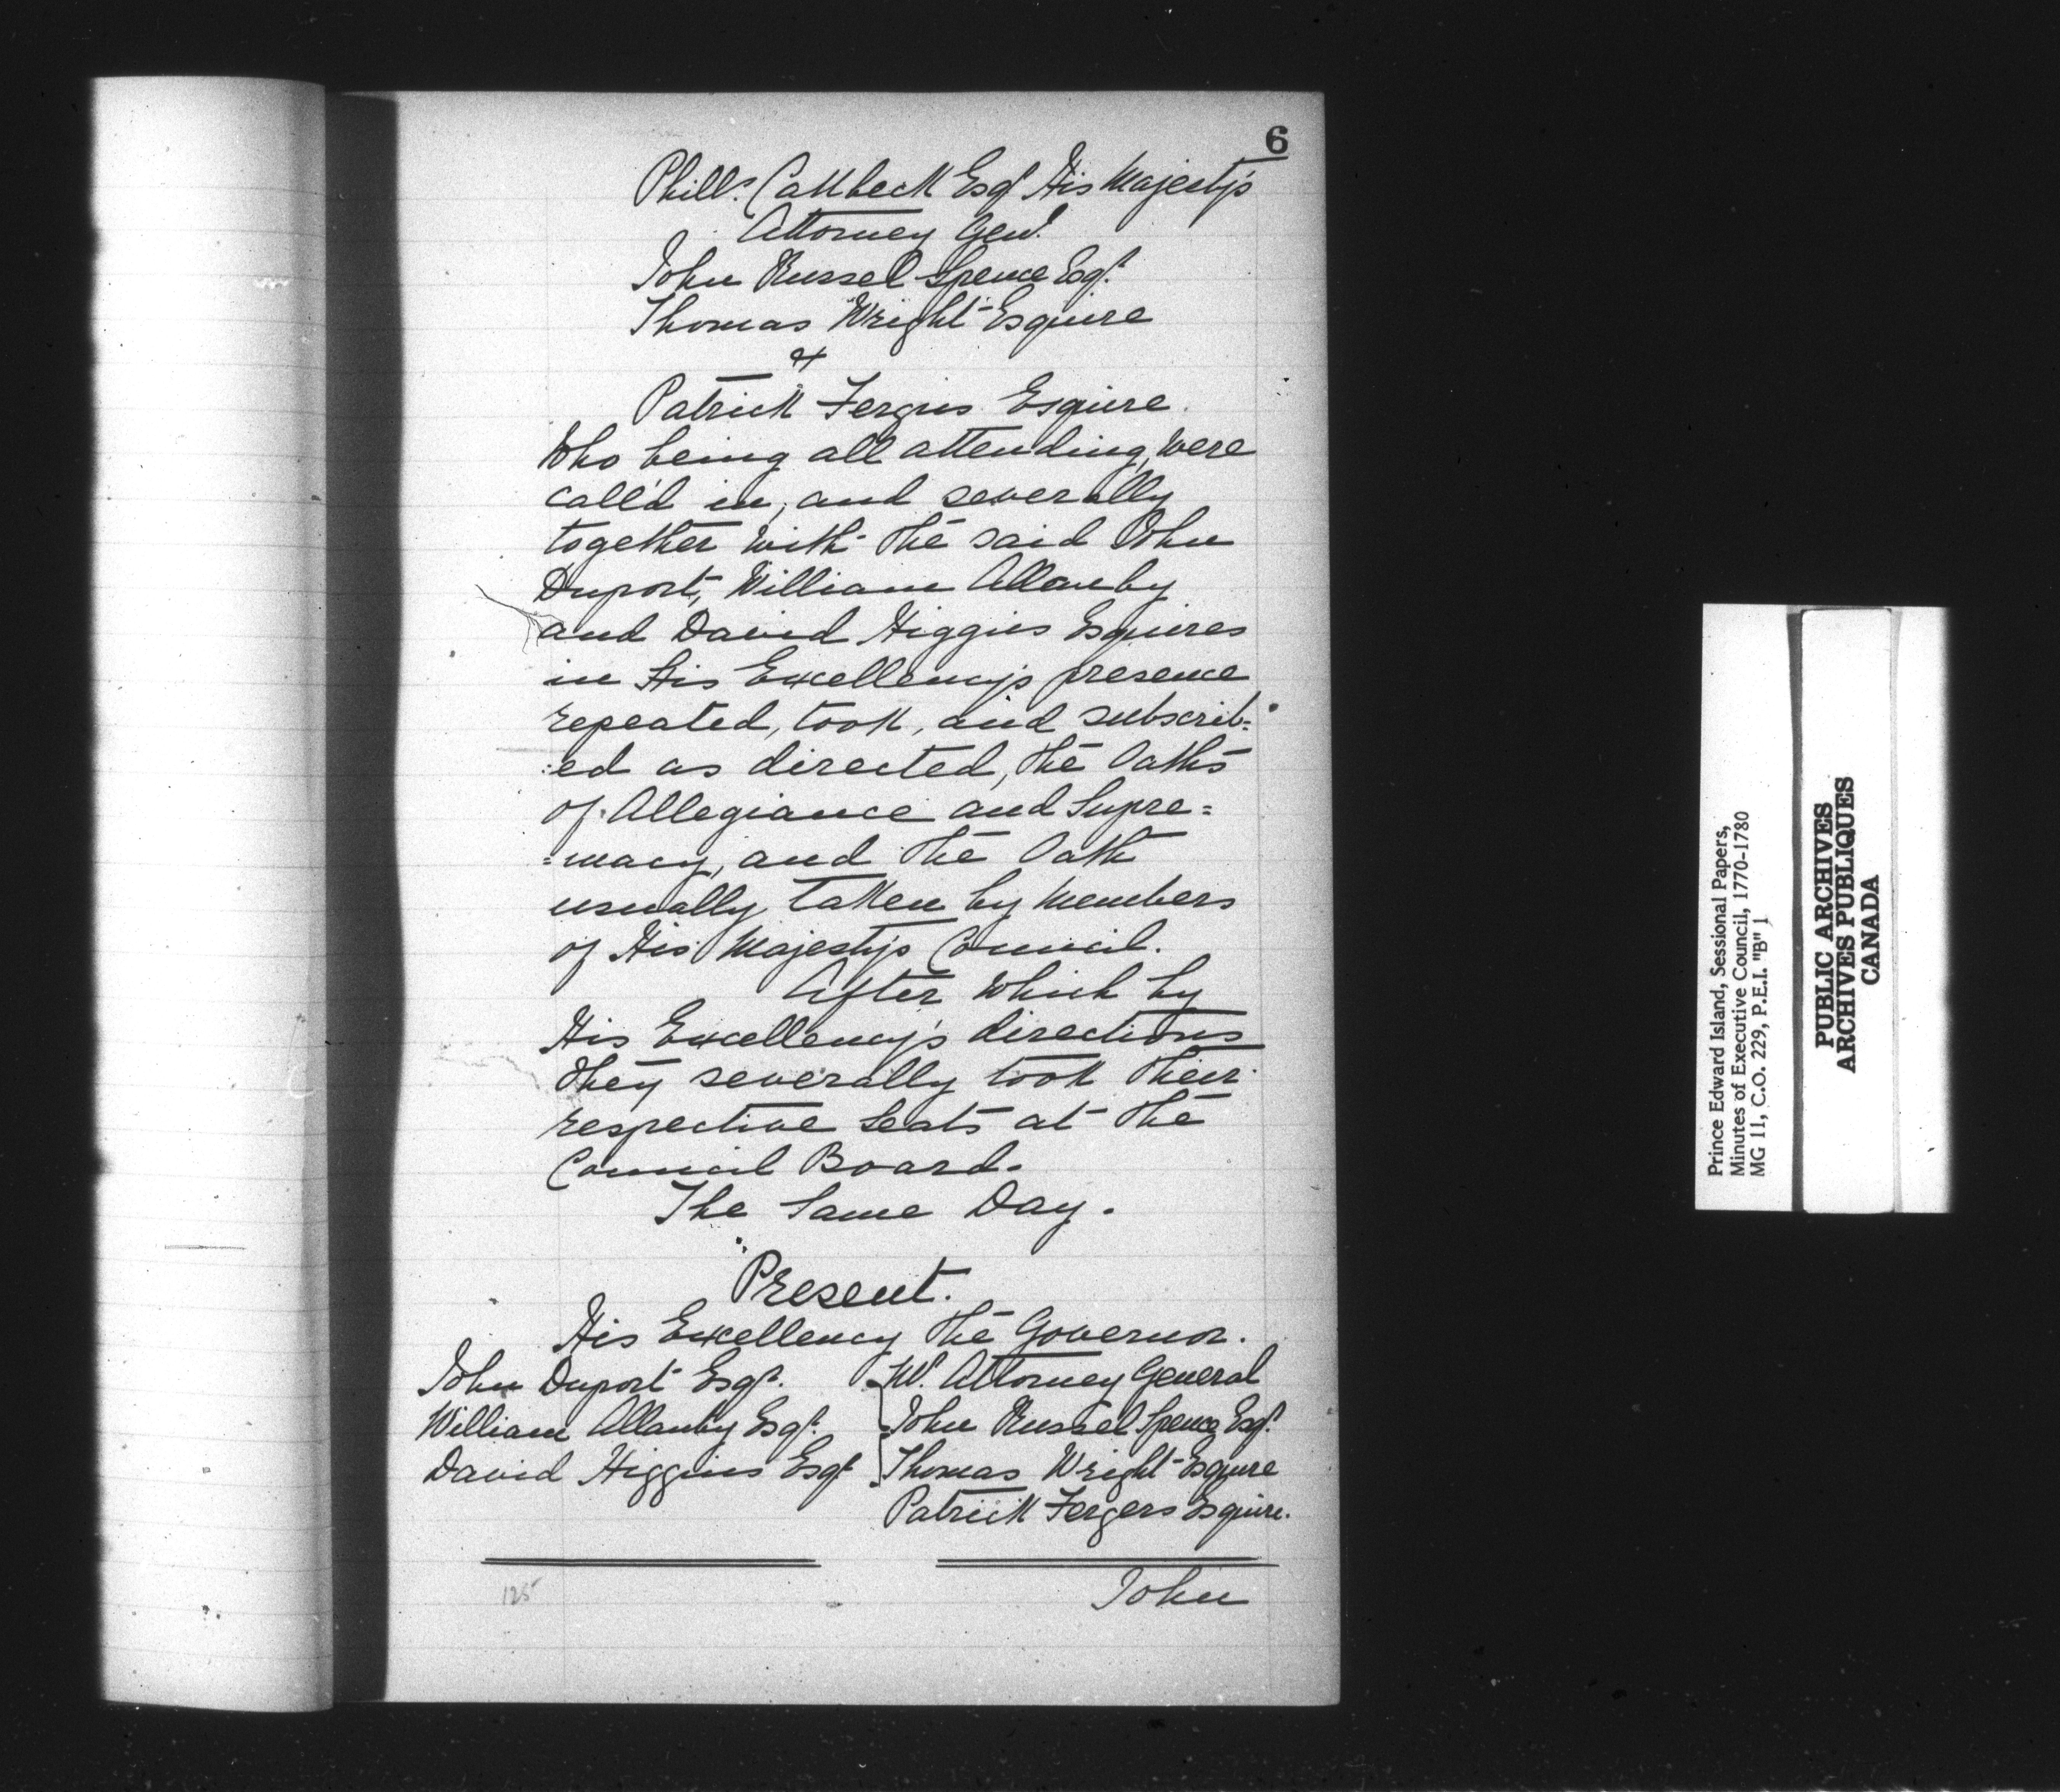 6
Phill. Callbeck Esqr. His Majesty's
Attorney Genl.
John Russel Spence Esqr.
Thomas Wright Esquire
&
Patrick Fergus Esquire.
Who being all attending, were
call'd in, and severally
together with the said John
Duport, William Allanby
and David Higgins Esquires
in His Excellency's presence
repeated, took, and subscrib=
:ed as directed, the Oaths
of Allegiance and Supre=
=macy, and the Oath
usually taken by Members
of His Majesty's Council.
After which by
His Excellency's directions
they severally took their
respective Seats at the
Council Board.
The Same Day.
Present.
His Excellency the Governor.
John Duport Esqr. Mr. Attorney General
William Allanby Esqr. John Russel Spence Esqr.
David Higgins Esqr. Thomas Wright Esquire
Patrick Fergers Esquire.
John
125
Prince Edward Island, Sessional Papers,
Minutes of Executive Council, 1770-1780
MG 11, C.O. 229, P.E.I. "B" 1
PUBLIC ARCHIVES
ARCHIVES PUBLIQUES
CANADA